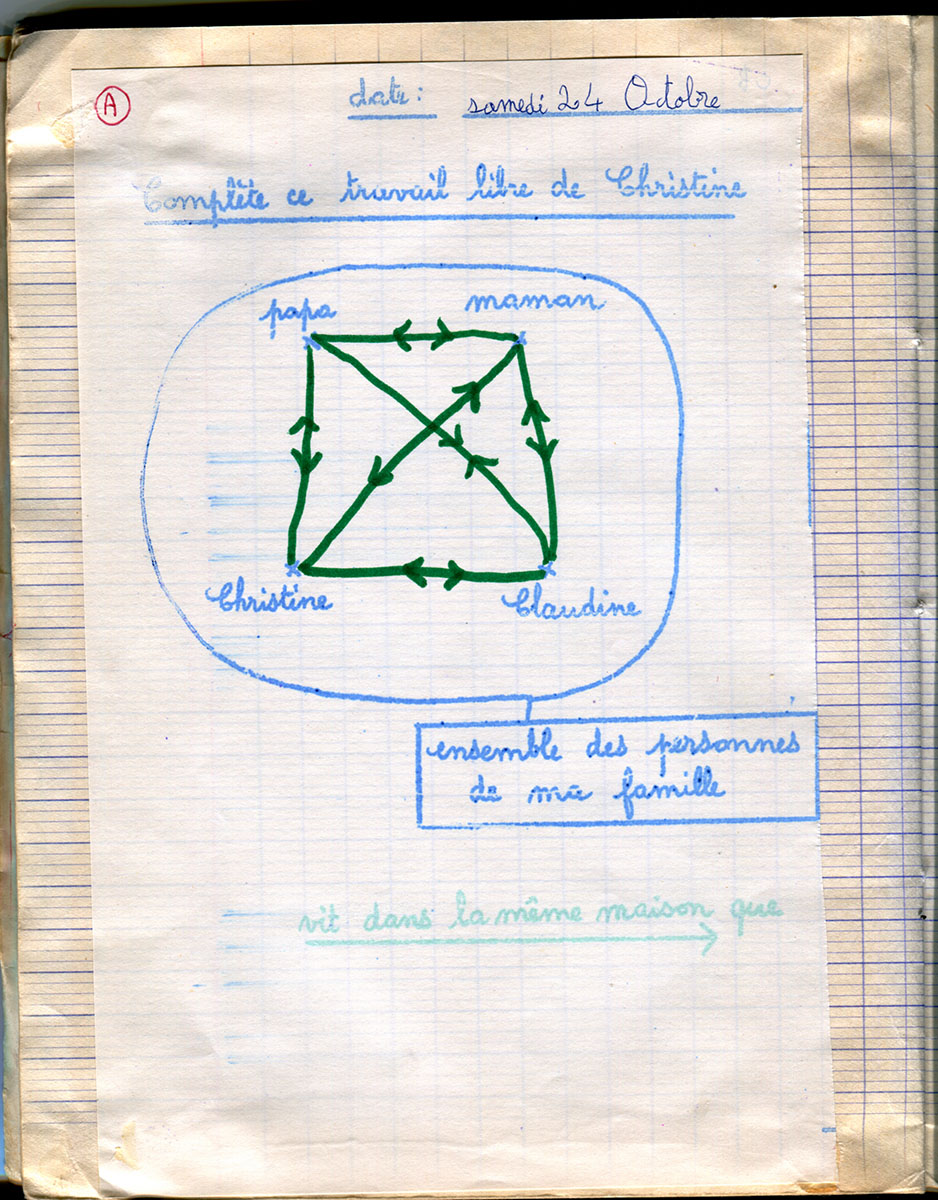 A
date: samedi 24 Octobre
Complète ce travail libre de Christine
papa
maman
Christine
Claudine
ensemble des personnes
de ma famille
vit dans la même maison que